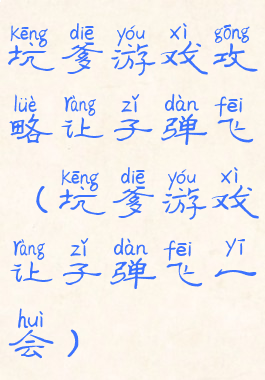 kēng diē yóu xì gōng
坑爹游戏攻
lüè ràng zǐ dàn fēi
略让子弹飞
kēng diē yóu xì
（坑爹游戏
ràng zǐ dàn fēi yī
让子弹飞一
huì
会）